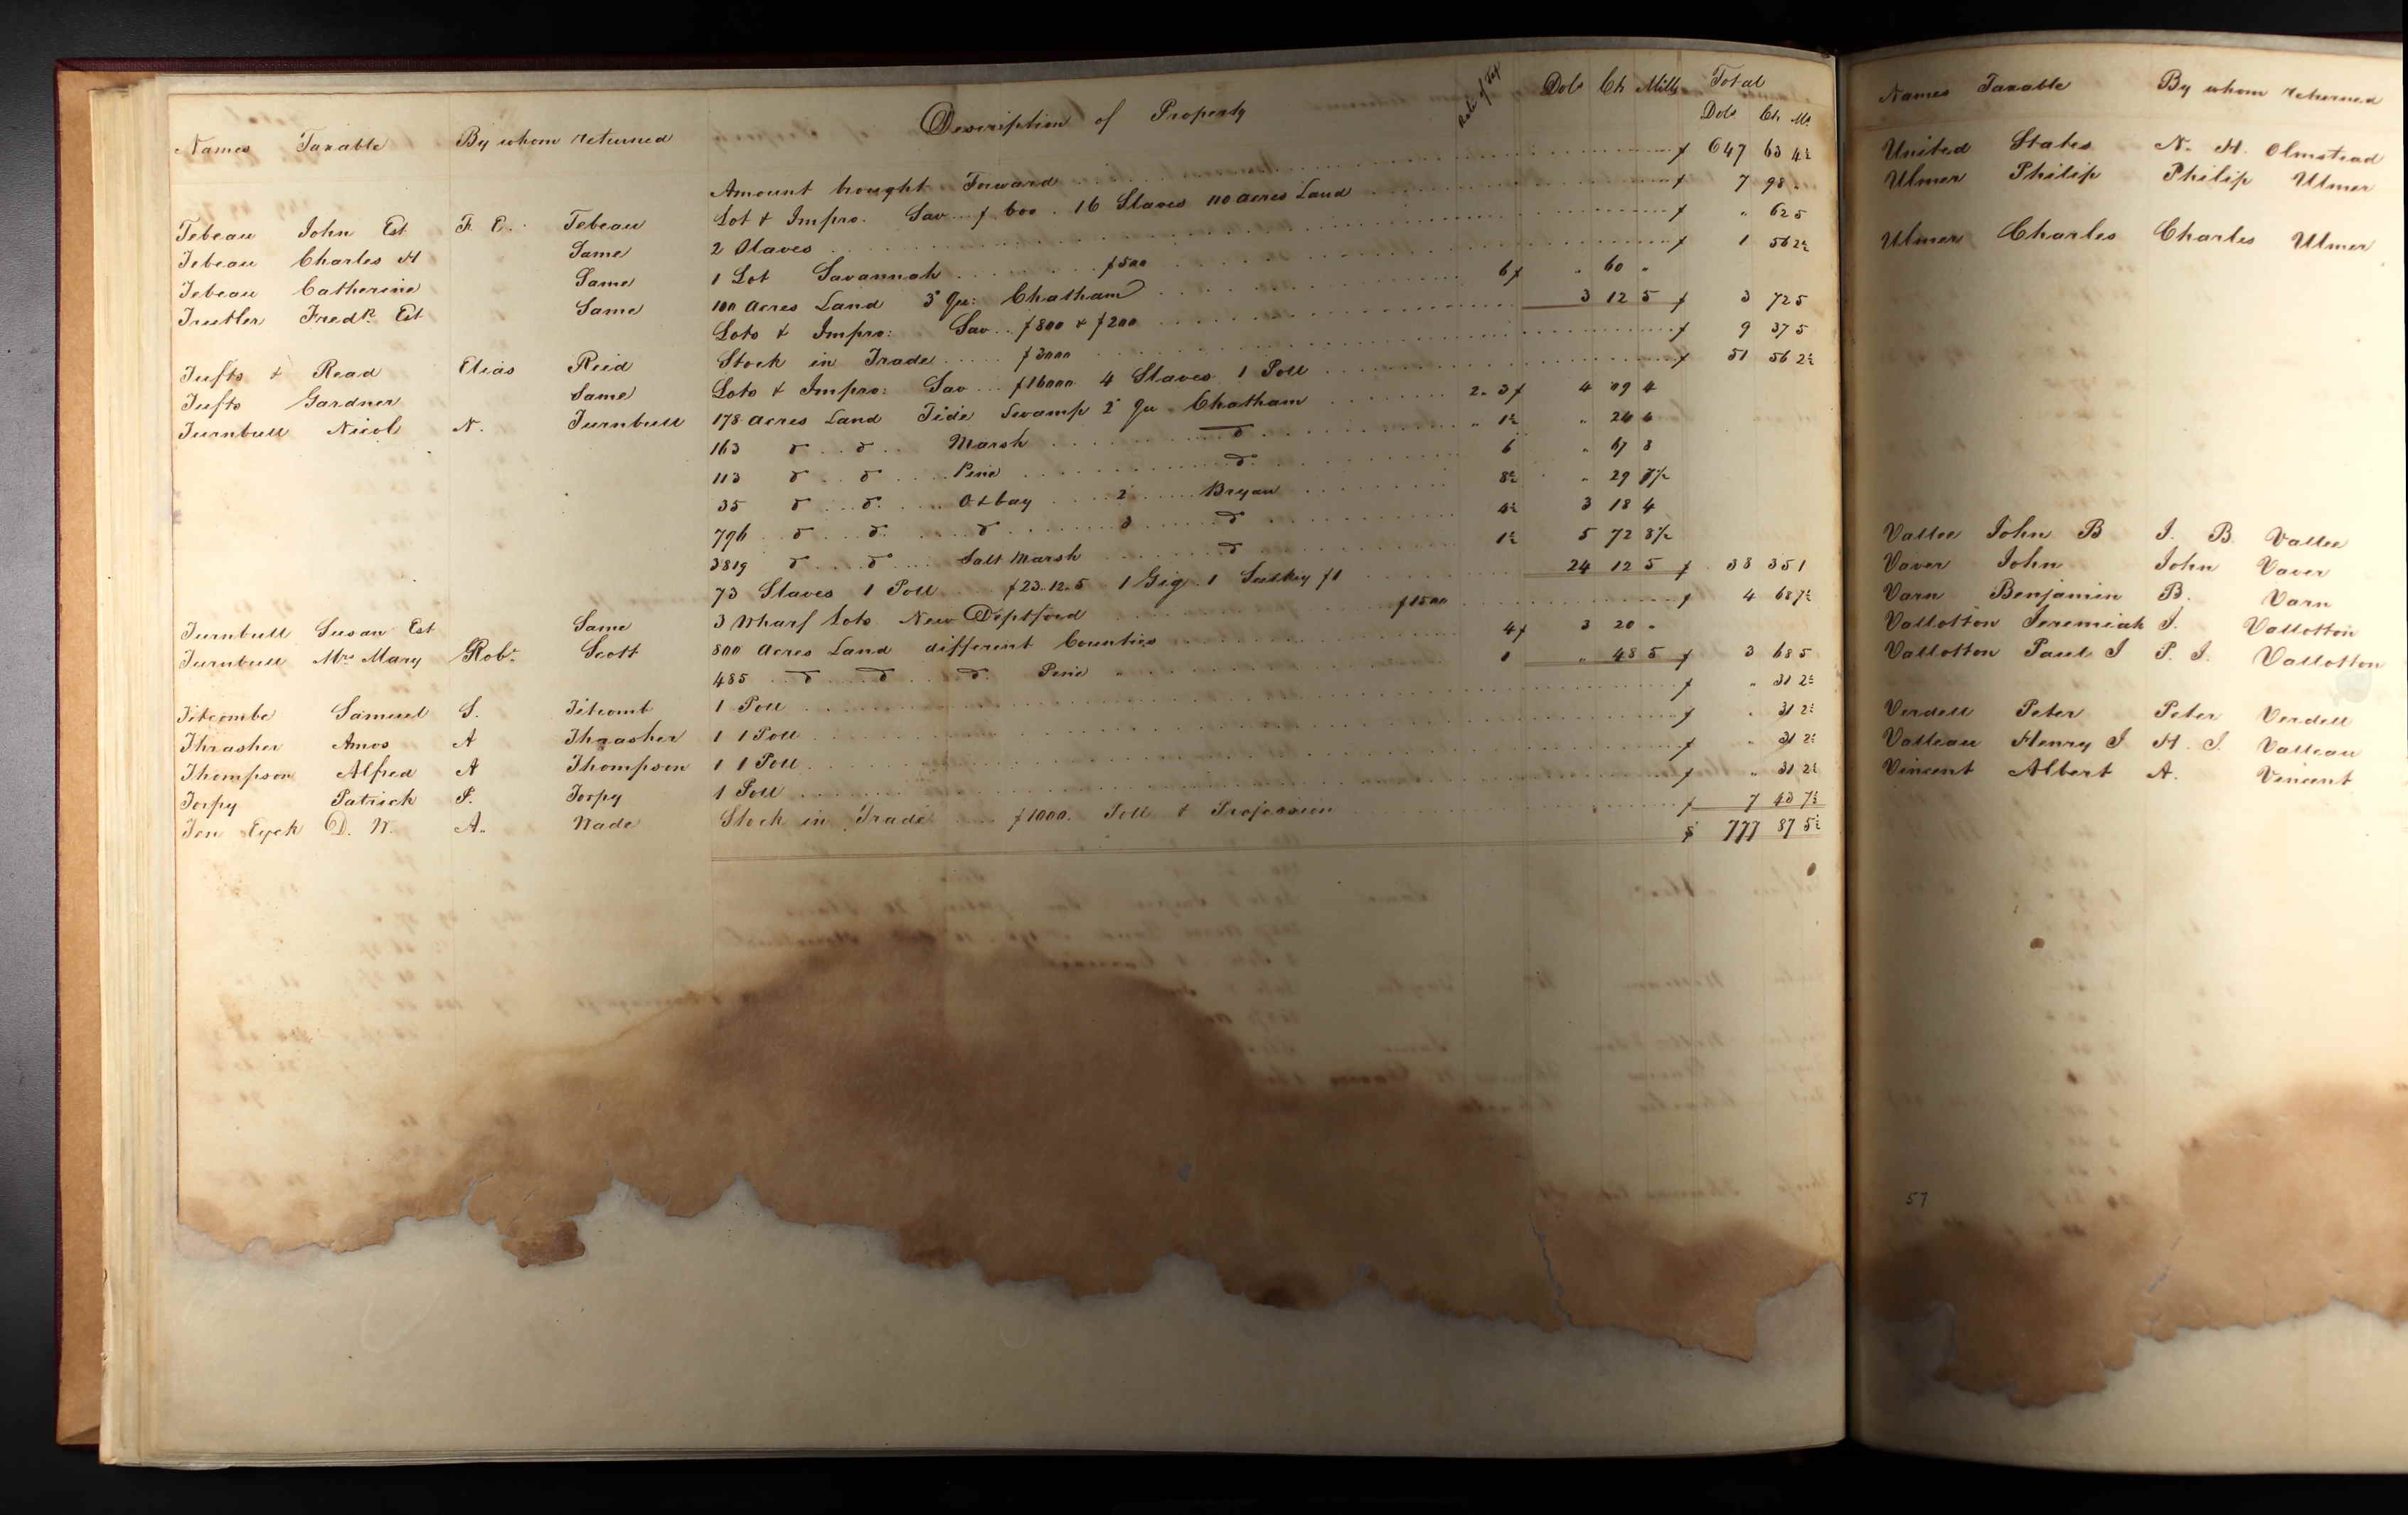 Names Taxable By whom returned Description of Property Rate of Tax Dols Cts Mills Total Dols Cts Ms
Amount brought Forward $ 647 63 4½
Tebeau John Est F. E. Tebeau Lot & Impro. Sav $600. 16 Slaves 110 acres Land $ 7 98 "
Tebeau Charles H Same 2 Slaves $ " 62 5
Tebeau Catherine Same 1 Lot Savannah $500 $ 1 56 2½
Treutler Fredk Est Same 100 acres Land 3d Qu: Chatham 6 $ " 60 "
Lots & Impro: Sav $800 & $200 3 12 5 $ 3 72 5
Tufts & Read Elias Reid Stock in Trade $3000 $ 9 37 5
Tufts Gardner Same Lots & Impro: Sav $16000 4 Slaves 1 Poll $ 51 56 2½
Turnbull Nicol N. Turnbull 178 acres Land Tide Swamp 2d Qu. Chatham 2.3 $ 4 09 4
163 do do Marsh do " 1½ " 24 4
113 do do Pine do 6 " 67 8
35 do do O & bay 2 Bryan 8½ " 29 7½
796 do do do 3 do 4 3 18 4
3819 do do Salt Marsh do 1½ 5 72 8½
73 Slaves 1 Poll $23.12.5 1 Gig. 1 Sulkey $1 24 12 5 $ 38 35 1
Turnbull Susan Est Same 3 Wharf Lots New Deptford $1500 $ 4 68 7½
Turnbull Mrs Mary Robt Scott 800 acres Land different Counties 4 $ 3 20 "
485 do do do Pine 1 " 48 5 $ 3 68 5
Titcombe Samuel S. Titcomb 1 Poll $ " 31 2½
Thrasher Amos A Thrasher 1 1 Poll $ " 31 2½
Thompson Alfred A Thompson 1 1 Poll $ " 31 2½
Torpy Patrick P. Torpy 1 Poll $ " 31 2½
Ten Eyck D. W. A. Wade Stock in Trade $1000. Poll & Profession $ 7 43 7½
$ 777 87 5½
Names Taxable By whom returned
United States N. H. Olmstead
Ulmer Philip Philip Ulmer
Ulmer Charles Charles Ulmer
Vallee John B J. B. Vallee
Vaver John John Vaver
Varn Benjamin B. Varn
Vallotton Jeremiah J. Vallotton
Vallotton Paul J P. J. Vallotton
Verdell Peter Peter Verdell
Valleau Henry J H. J. Valleau
Vincent Albert A. Vincent
57